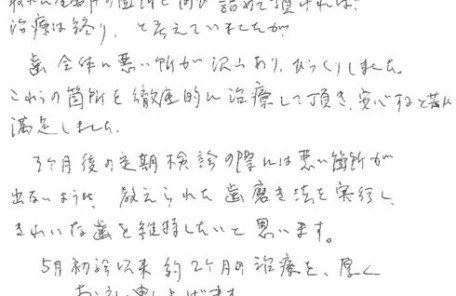 取れた金属の箇所を再び詰めて頂ければ、
治療は終り、と考えていましたが
歯全体に悪い所が沢山あり、びっくりしました。
これらの箇所を徹底的に治療して頂き、安心すると共に
満足しました。
3ヶ月後の定期検診の際には悪い箇所が
出ないように、教えられた歯磨き法を実行し、
きれいな歯を維持したいと思います。
5月初診以来約2ヶ月の治療を、厚く
お礼申し上げます